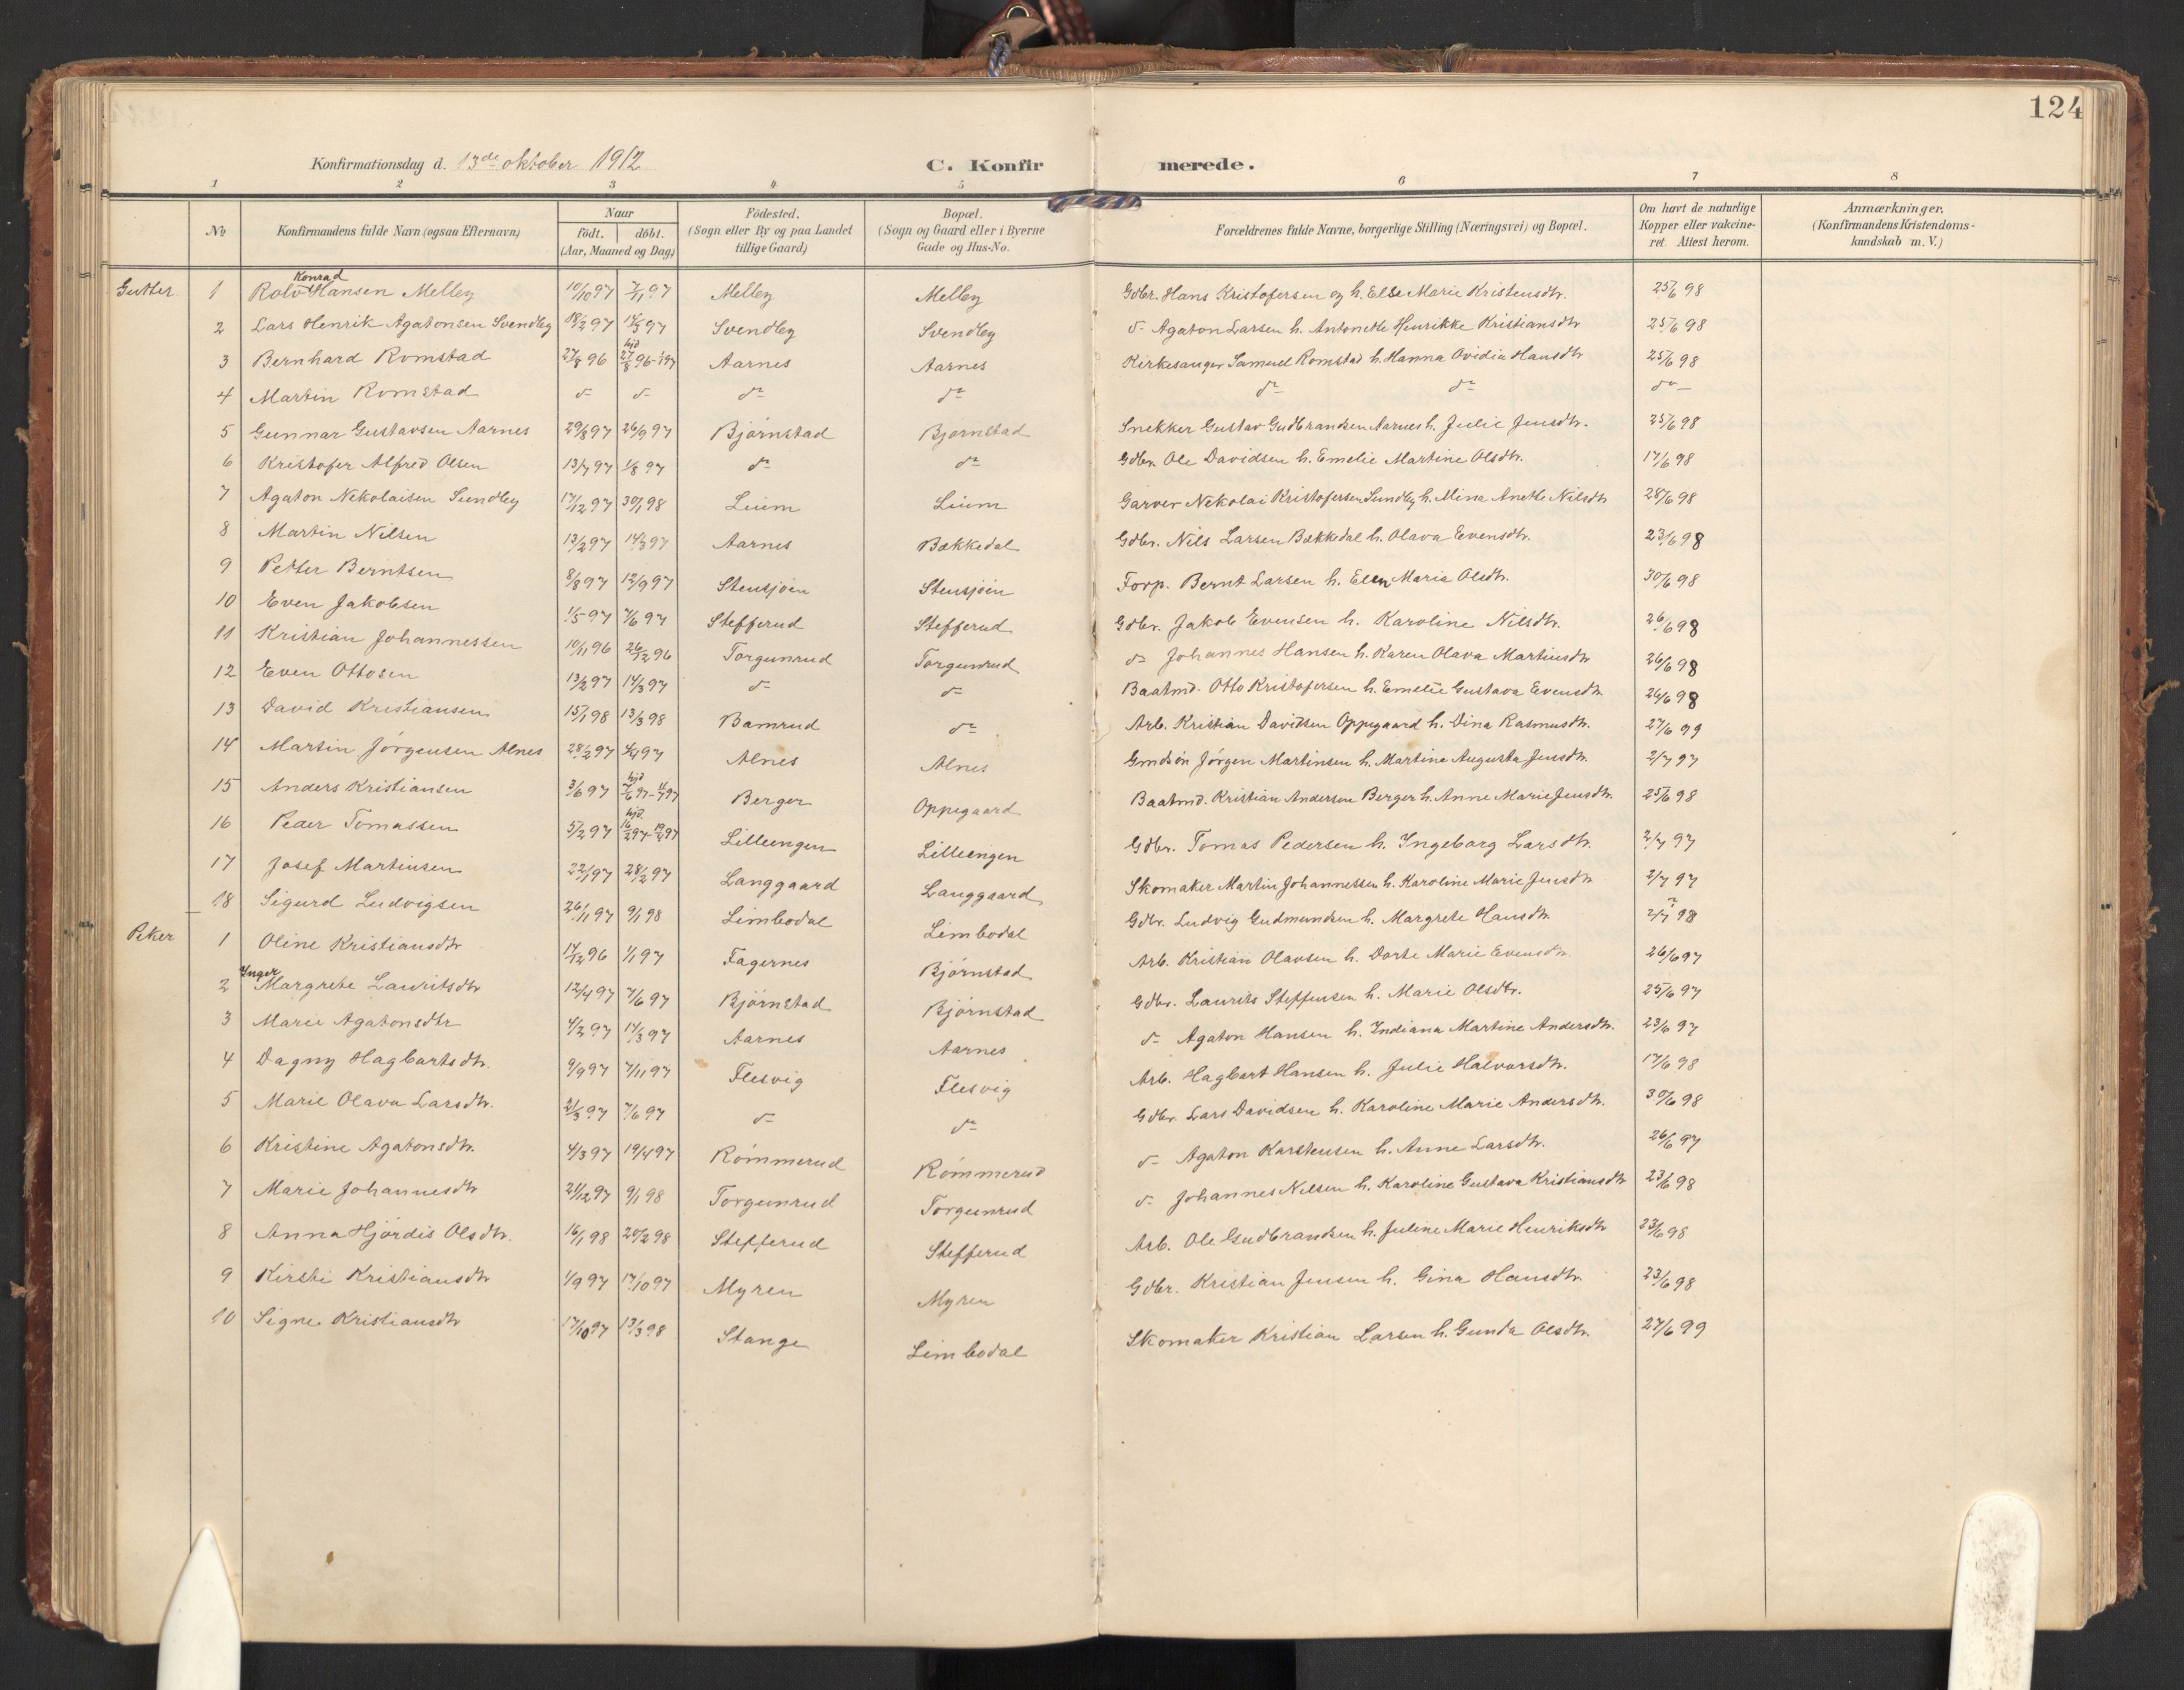 124
Konfirmationsdag d. 13de oktober 1912 C. Konfirmerede.
1 2 3 4 5 6 7 8
No Konfirmandens fulde Navn (ogsaa Efternavn) Naar født. døbt. (Aar, Maaned og Dag) Födested. (Sogn eller By og paa Landet tillige Gaard) Bopæl. (Sogn og Gaard eller i Byerne Gade og Hus-No. Forældrenes fulde Navne, borgerlige Stilling (Næringsvei) og Bopæl. Om havt de naturlige Kopper eller vakcineret. Attest herom. Anmærkninger. (Konfirmandens Kristendomskundskab m. V.)
Gutter 1 Rolv Konrad Hansen Melby 10/10 97 7/11 97 Melby Melby Gdbr. Hans Kristofersen og h. Else Marie Kristensdtr. 25/6 98
2 Lars Henrik Agatonsen Svendby 18/2 97 14/3 97 Svendby Svendby do Agaton Larsen h. Antonette Henrikke Kristiansdtr 25/6 98
3 Bernhard Romstad 27/8 96 hjd 27/8 96 - 1/1 97 Aarnes Aarnes Kirkesanger Samuel Romstad h. Hanna Ovidia Hansdtr 25/6 98
4 Martin Romstad do do do do do do do
5 Gunnar Gustavsen Aarnes 29/8 97 26/9 97 Bjørnstad Bjørnstad Snekker Gustav Gudbrandsen Aarnes h. Julie Jensdtr. 25/6 98
6 Kristofer Alfred Olsen 13/7 97 1/8 97 do do Gdbr. Ole Davidsen h. Emelie Martine Olsdtr. 17/6 98
7 Agaton Nekolaisen Sundby 17/12 97 30/1 98 Lium Lium Garver Nekolai Kristofersen Sundby h. Mina Anette Nilsdtr 28/6 98
8 Martin Nilsen 13/2 97 14/3 97 Aarnes Bækkedal Gdbr. Nils Larsen Bækkedal h. Olava Evensdtr. 23/6 98
9 Petter Berntsen 8/8 97 12/9 97 Stensjøen Stensjøen Forp. Bernt Larsen h. Ellen Marie Olsdtr. 30/6 98
10 Even Jakobsen 1/5 97 7/6 97 Stefferud Stefferud Gdbr. Jakob Evensen h. Karoline Nilsdtr. 26/6 98
11 Kristian Johannessen 10/11 96 26/12 96 Torgunrud Torgunrud do Johannes Hansen h. Karen Olava Martinsdtr 26/6 98
12 Even Ottosen 13/2 97 14/3 97 do do Baatmd. Otto Kristofersen h. Emelie Gustava Evensdtr 26/6 98
13 David Kristiansen 15/1 98 13/3 98 Bamrud do Arb. Kristian Davidsen Oppegaard h. Dina Rasmusdtr. 27/6 99
14 Martin Jørgensen Alnes 28/2 97 4/4 97 Alnes Alnes Grndsön Jörgen Martinsen h. Martine Augusta Jensdtr. 2/7 97
15 Anders Kristiansen 3/6 97 hjd 7/6 97 - 11/7 97 Berger Oppegaard Baatmd. Kristian Andersen Berger h. Anne Marie Jensdtr. 25/6 98
16 Peder Tomassen 5/2 97 hjd 16/2 97 - 19/4 97 Lilleengen Lilleengen Gdbr. Tomas Pedersen h. Ingeborg Larsdtr. 2/7 97
17 Josef Martinsen 22/1 97 28/2 97 Langgaard Langgaard Skomaker Martin Johannessen h. Karoline Marie Jensdtr 2/7 97
18 Sigurd Ludvigsen 26/11 97 9/1 98 Limbodal Limbodal Gdbr. Ludvig Gudmundsen h. Margrete Hansdtr. 2/7 98
Piker 1 Oline Kristiansdtr 17/12 96 1/1 97 Fagernes Bjørnstad Arb. Kristian Olavsen h. Dorte Marie Evensdtr. 26/6 97
2 Inger Margrete Lauritsdtr 12/4 97 7/6 97 Bjørnstad Bjørnstad Gdbr. Laurits Steffensen h. Marie Olsdtr. 25/6 97
3 Marie Agatonsdtr 4/2 97 14/3 97 Aarnes Aarnes do Agaton Hansen h. Indiana Martine Andersdtr. 23/6 97
4 Dagny Hagbartsdtr. 9/9 97 7/11 97 Flesvig Flesvig Arb. Hagbart Hansen h. Julie Halvorsdtr. 17/6 98
5 Marie Olava Larsdtr. 21/3 97 7/6 97 do do Gdbr. Lars Davidsen h. Karoline Marie Andersdtr. 30/6 98
6 Kristine Agatonsdtr. 4/3 97 19/4 97 Rømmerud Rømmerud do Agaton Karstensen h. Anne Larsdtr. 26/6 97
7 Marie Johannesdtr 21/12 97 9/1 98 Torgunrud Torgunrud do Johannes Nilsen h. Karoline Gustava Kristiansdtr 23/6 98
8 Anna Hjørdis Olsdtr. 16/1 98 20/2 98 Stefferud Stefferud Arb. Ole Gudbrandsen h. Juline Marie Henriksdtr 23/6 98
9 Kirsti Kristiansdtr 1/9 97 17/10 97 Myren Myren Gdbr. Kristian Jensen h. Gina Hansdtr. 23/6 98
10 Signe Kristiansdtr 17/10 97 13/3 98 Stange Limbodal Skomaker Kristian Larsen h. Gunda Olsdtr. 27/6 99